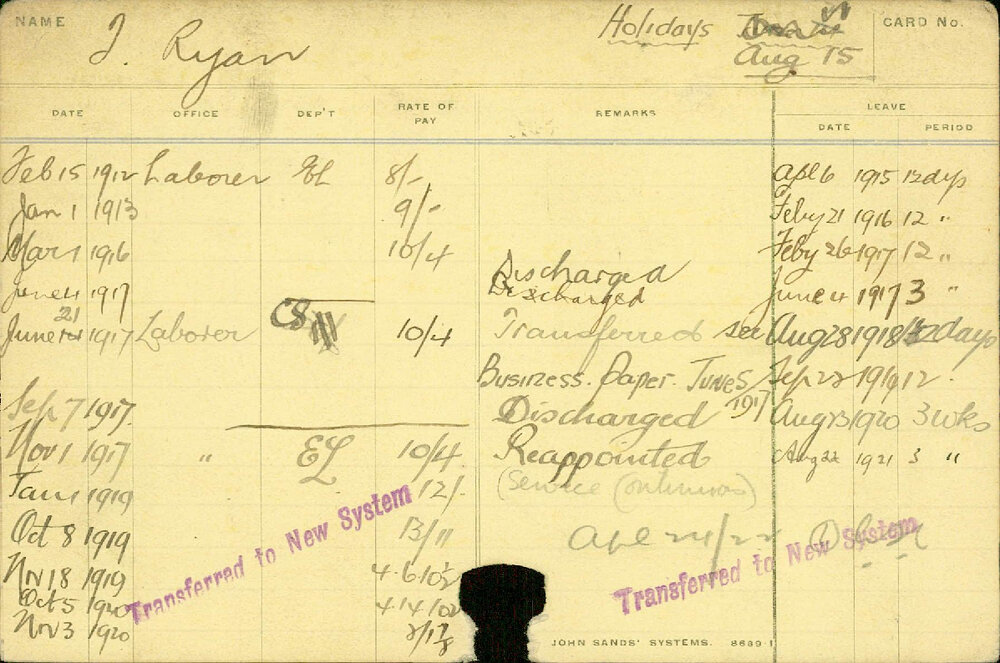 NAME T. Ryan Holidays Aug 15 CARD No.
DATE OFFICE DEP'T RATE OF PAY REMARKS LEAVE
DATE PERIOD
Feb 15 1912 Laborer EL 8/- Apl 6 1915 12 dys
Jan 1 1913 9/- Feby 21 1916 12 "
Mar 1 1916 10/4 Feby 26 1917 12 "
Discharged
June 4 1917 Discharged June 4 1917 3 "
21
June 1917 Laborer CS 10/4 Transferred see Aug 28 1918 12 days
Business. Paper. June 5 1917 Sep 22 1919 12 "
Sep 7 1917. Discharged Aug 23 1920 3 wks
Nov 1 1917 " EL 10/4 Reappointed Aug 22 1921 3 "
Jan 1 1919 12/- (Service Continuous)
Oct 8 1919 13/11 Apl 24/22
Nv 18 1919 4.6.10½
Oct 5 1920 4.14.10½
Nv 3 1920
Transferred to New System
Transferred to New System
JOHN SANDS' SYSTEMS. 8689-1